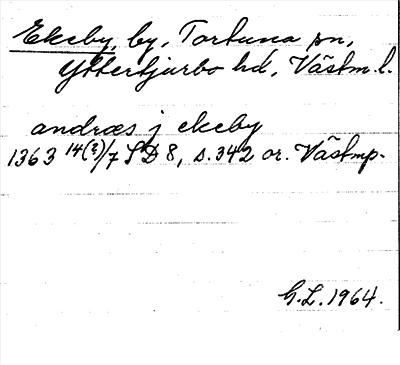 Ekeby, by, Tortuna sn,
Yttertjurbo hd, Västm.l.
andræs j ekeby
1363 14(?)/7 SD 8, s. 342 or. Västmp.
G.L. 1964.